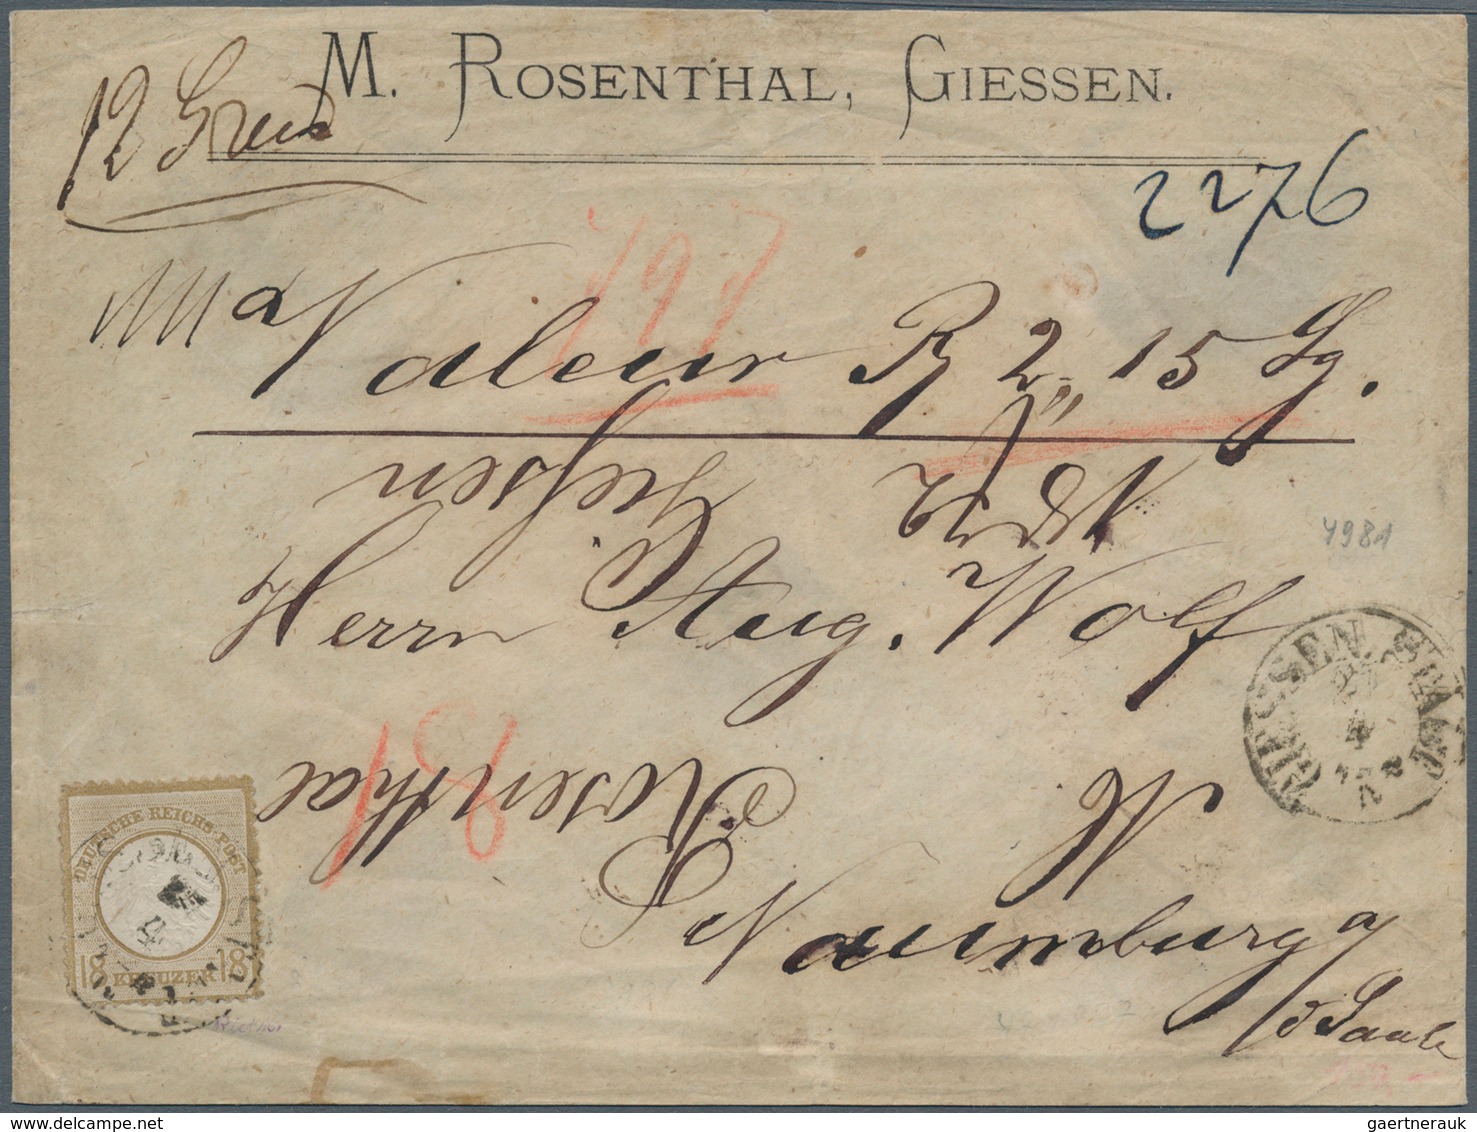 M. ROSENTHAL, GIESSEN.
12
2276
Valeur R 2 „ 15 Sg.
Giessen
Herrn Aug. Wolf
4981
GIESSEN. STADT
18
M Rosenthal
Naumburg a/
d Saale
DEUTSCHE REICHS-POST
18 KREUZER 18
gaertnerauk